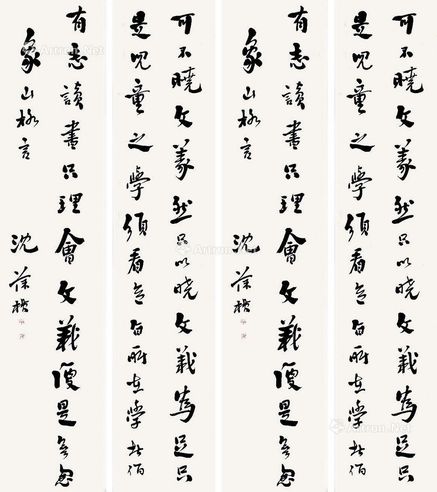 可不曉文義然只以曉文義為足只
是兒童之學須看意旨所在學者
有志讀書只理會文義便是無
象山格言
沈葆楨
可不曉文義然只以曉文義為足只
是兒童之學須看意旨所在學者
有志讀書只理會文義便是無
象山格言
沈葆楨
Artron.Net